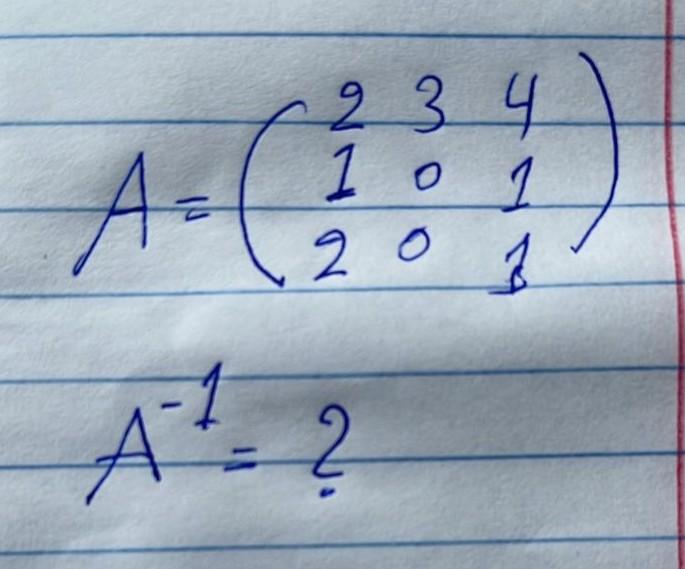 A = ( 2 3 4
1 0 1
2 0 1 )
A⁻¹ = ?